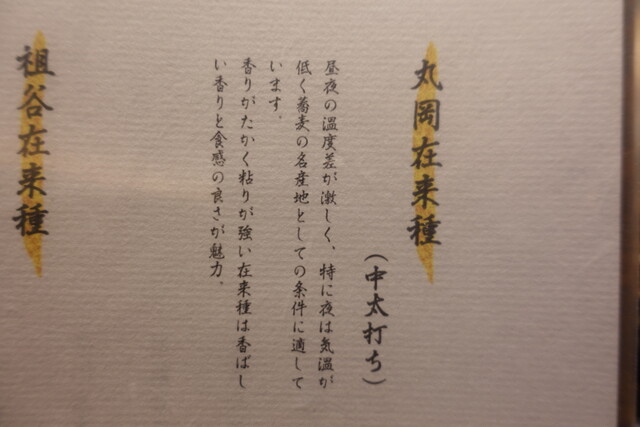 丸岡在来種
（中太打ち）
昼夜の温度差が激しく、特に夜は気温が
低く蕎麦の名産地としての条件に適して
います。
香りがたかく粘りが強い在来種は香ばし
い香りと食感の良さが魅力。
祖谷在来種